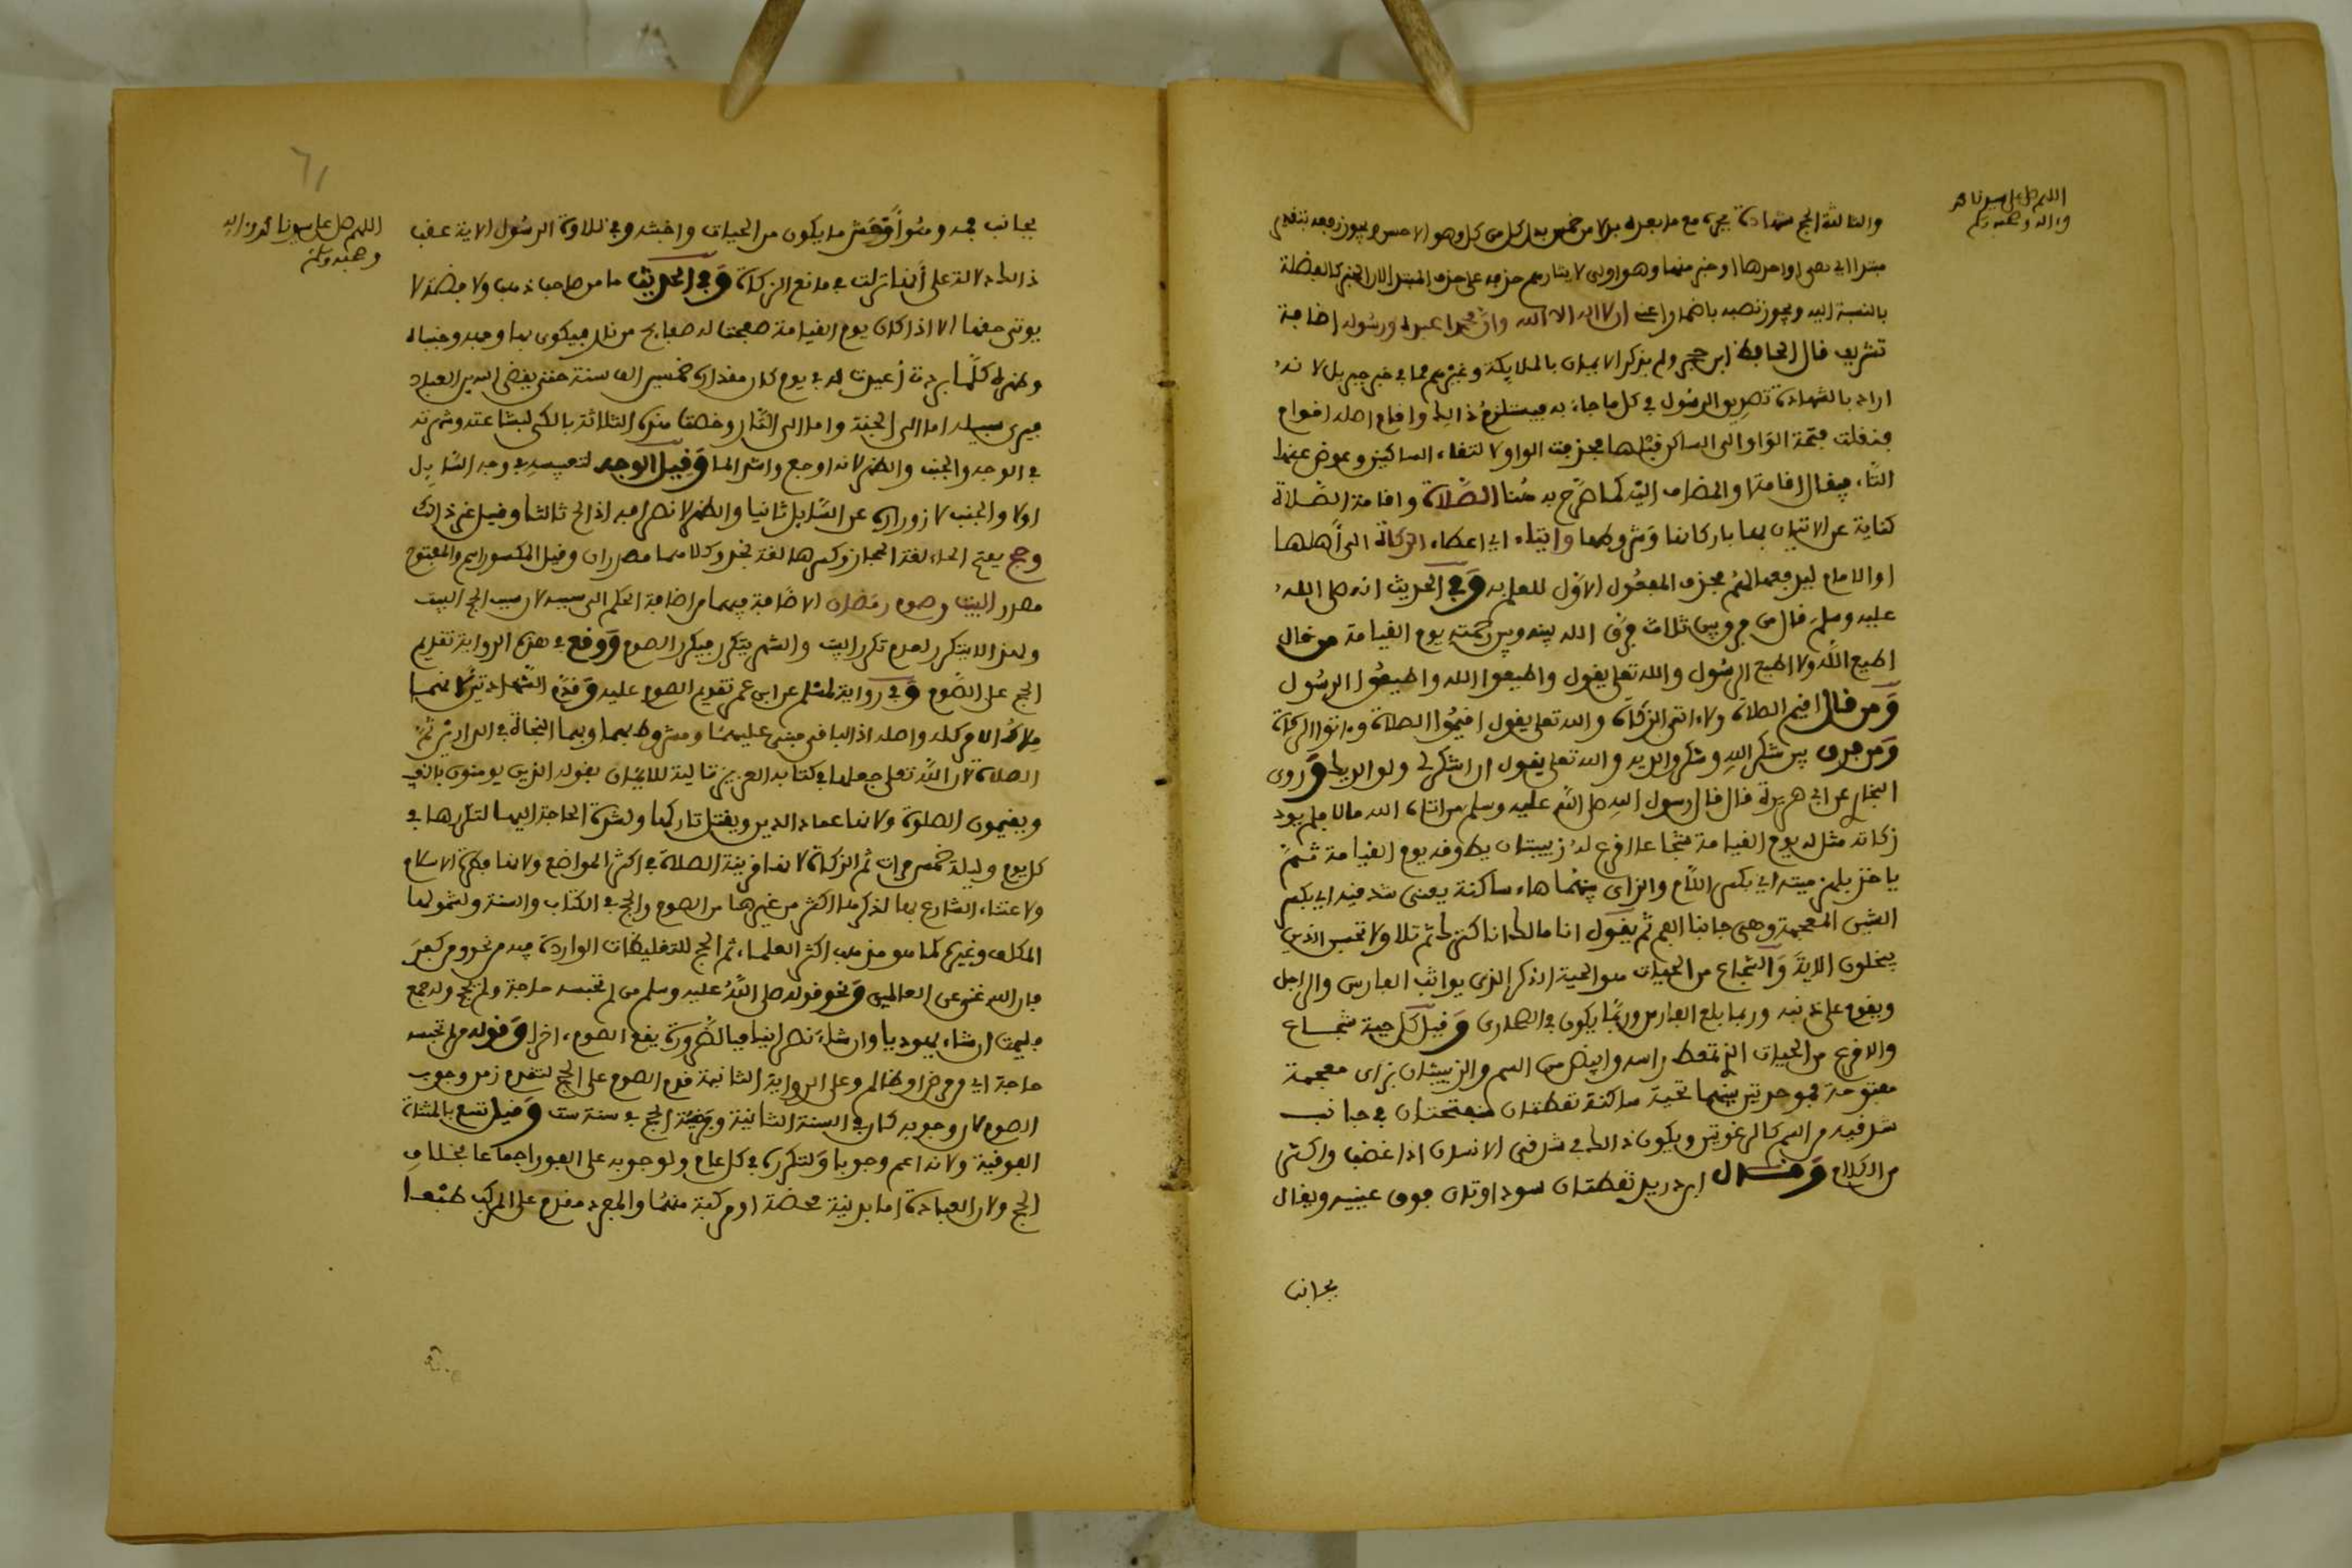 اللهم صل على سيدنا محمد
وءاله وصحبه وسلم
والثالثة الحج شهادة يجره مع ما بعده بدلا من خمس بدل كل من كل وهو الاحسن ويجوز رفعه بتقدير
مبتدا اي هي او احدها او خبر منها وهو اولى
بالنسبة اليه ويجوز نصبه باضمار اعني ان لا اله الا الله وان محمدا عبده ورسوله اضافة
تشريف قال الحافظ ابن حجر ولم يذكر الايمان بالملايكة وغيرهم مما في خبر جبريل لانه
اراد بالشهادة تصديق الرسول في كل ما جاء به فيستلزم ذالك واقام اصله اقوام
فنقلت فتحة الواو الى الساكن قبلها فحذفت الواو لالتقاء الساكنين وعوض عنها
التاء فيقال اقامة والمضاف اليه كما صرح به هنا الصلاة واقامة الصلاة
كناية عن الاتيان بها باركانها وشروطها وايتاء اي اعطاء الزكاة الى أهلها
او الامام ليدفعها لهم فحذف المفعول الأول للعلم به وفي الحديث انه صلى الله
عليه وسلم قال من فرق بين ثلاث فرق الله بينه وبين رحمته يوم القيامة من قال
اطيع الله ولا اطيع الرسول والله تعلى يقول واطيعوا الله واطيعوا الرسول
ومن قال اقيم الصلاة ولا ءاتى الزكاة والله تعلى يقول اقيموا الصلاة وءاتوا الزكاة
ومن فرق بين شكر الله وشكر والديه والله تعلى يقول ان اشكر لي ولوالديك وروى
البخاري عن ابي هريرة قال قال رسول الله صلى الله عليه وسلم من اتاه الله مالا فلم يود
زكاته مثل له يوم القيامة شجاعا اقرع له زبيبتان يطوقه يوم القيامة ثم
ياخذ بلهزميته اي بكسر اللام والزاى بينهما هاء ساكنة يعنى شدقيه اي بكسر
الشين المعجمة وهى جانبا الفم ثم يقول انا مالك انا كنزك ثم تلا ولا تحسبن الذين
يبخلون الاية والشجاع من الحيات هو الحية الذكر الذى يواثب الفارس والراجل
ويقوم على ذنبه وربما بلغ الفارس وربما يكون في الصحارى وقيل كل حية شجاع
والاقرع من الحيات الذي تمعط راسه وابيض من السم والزبيبتان بزاى معجمة
مفتوحة فموحدتين بينهما تحتية ساكنة نقطتان منفتختان في جانب
شدقيه من السم كالرغوتين ويكون ذالك في شدقي الانسان اذا غضب واكثر
من الكلام وقال ابن دريد نقطتان سوداوتان فوق عينيه ويقال
بجانب
٦١
اللهم صل على سيدنا محمد وءاله
وصحبه وسلم
بجانب فمه وهو أوحش ما يكون من الحيات واخبثه وفي تلاوة الرسول الاية عقب
ذالك دلالة على أنها نزلت في مانع الزكاة وفي الحديث ما من صاحب ذهب ولا فضة لا
يوتى حقها الا اذا كان يوم القيامة صفحت له صفايح من نار فيكوى بها وجهه وجنباه
وظهره كلما بردت أعيدت له في يوم كان مقداره خمسين الف سنة حتى يقضى الله بين العباد
فيرى سبيله اما الى الجنة واما الى النار وخصت هذه الثلاثة بالكى لبشاعته وشهرته
في الوجه والجنب والظهر لانه اوجع واشد الما وقيل الوجه لتعبيسه في وجه السايل
اولا والجنب لازوراره عن السايل ثانيا والظهر لانصرافه اذا الح ثالثا وقيل غير ذالك
وحج بفتح الحاء لغة الحجاز وكسرها لغة نجد وكلاهما مصدران وقيل المكسور اسم والمفتوح
مصدر البيت وصوم رمضان الاضافة فيهما من اضافة الحكم الى سببه لان سبب الحج البيت
ولهذا لا يتكرر لعدم تكرر البيت والشهر يتكرر فيكرر الصوم ووقع في هذه الرواية تقديم
الحج على الصوم وفي رواية لمسلم عن ابن عمر تقديم الصوم عليه وقدم الشهادتين لانهما
ملاك الامر كله واصله اذ الباقي مبني عليهما ومشروط بهما وبهما النجاة في الدارين ثم
الصلاة لان الله تعلى جعلها في كتابه العزيز تالية للايمان بقوله الذين يومنون بالغيب
ويقيمون الصلوة ولانها عماد الدين ويقتل تاركها ولشدة الحاجة اليها لتكررها في
كل يوم وليلة خمس مرات ثم الزكاة لانها قرينة الصلاة في اكثر المواضع ولانها قنطرة الاسلام
ولاعتناء الشارع بها لذكرها اكثر من غيرها من الصوم والحج في الكتاب والسنة ولشمولها
المكلف وغيره كما هو مذهب اكثر العلماء ثم الحج للتغليظات الواردة فيه من نحو ومن كفر
فان الله غني عن العالمين ونحو قوله صلى الله عليه وسلم من لم تحبسه حاجة ولم يحج ولم جمع
فليمت ان شاء يهوديا وان شاء نصرانيا فبالضرورة يقع الصوم ءاخرا وقوله من لم تحبسه
حاجة اي ومرض او ظالم وعلى الرواية الثانية قدم الصوم على الحج لتقدم زمن وجوب
الصوم لان وجوبه كان في السنة الثانية وفرضية الحج في سنة ست وقيل تسع بالمثناة
الفوقية ولانه اعم وجوبا ولتكرره في كل عام ولوجوبه على الفور اجماعا بخلاف
الحج ولان العبادة اما بدنية محضة او مركبة منهما والمفرد مقدم على المركب طبعا